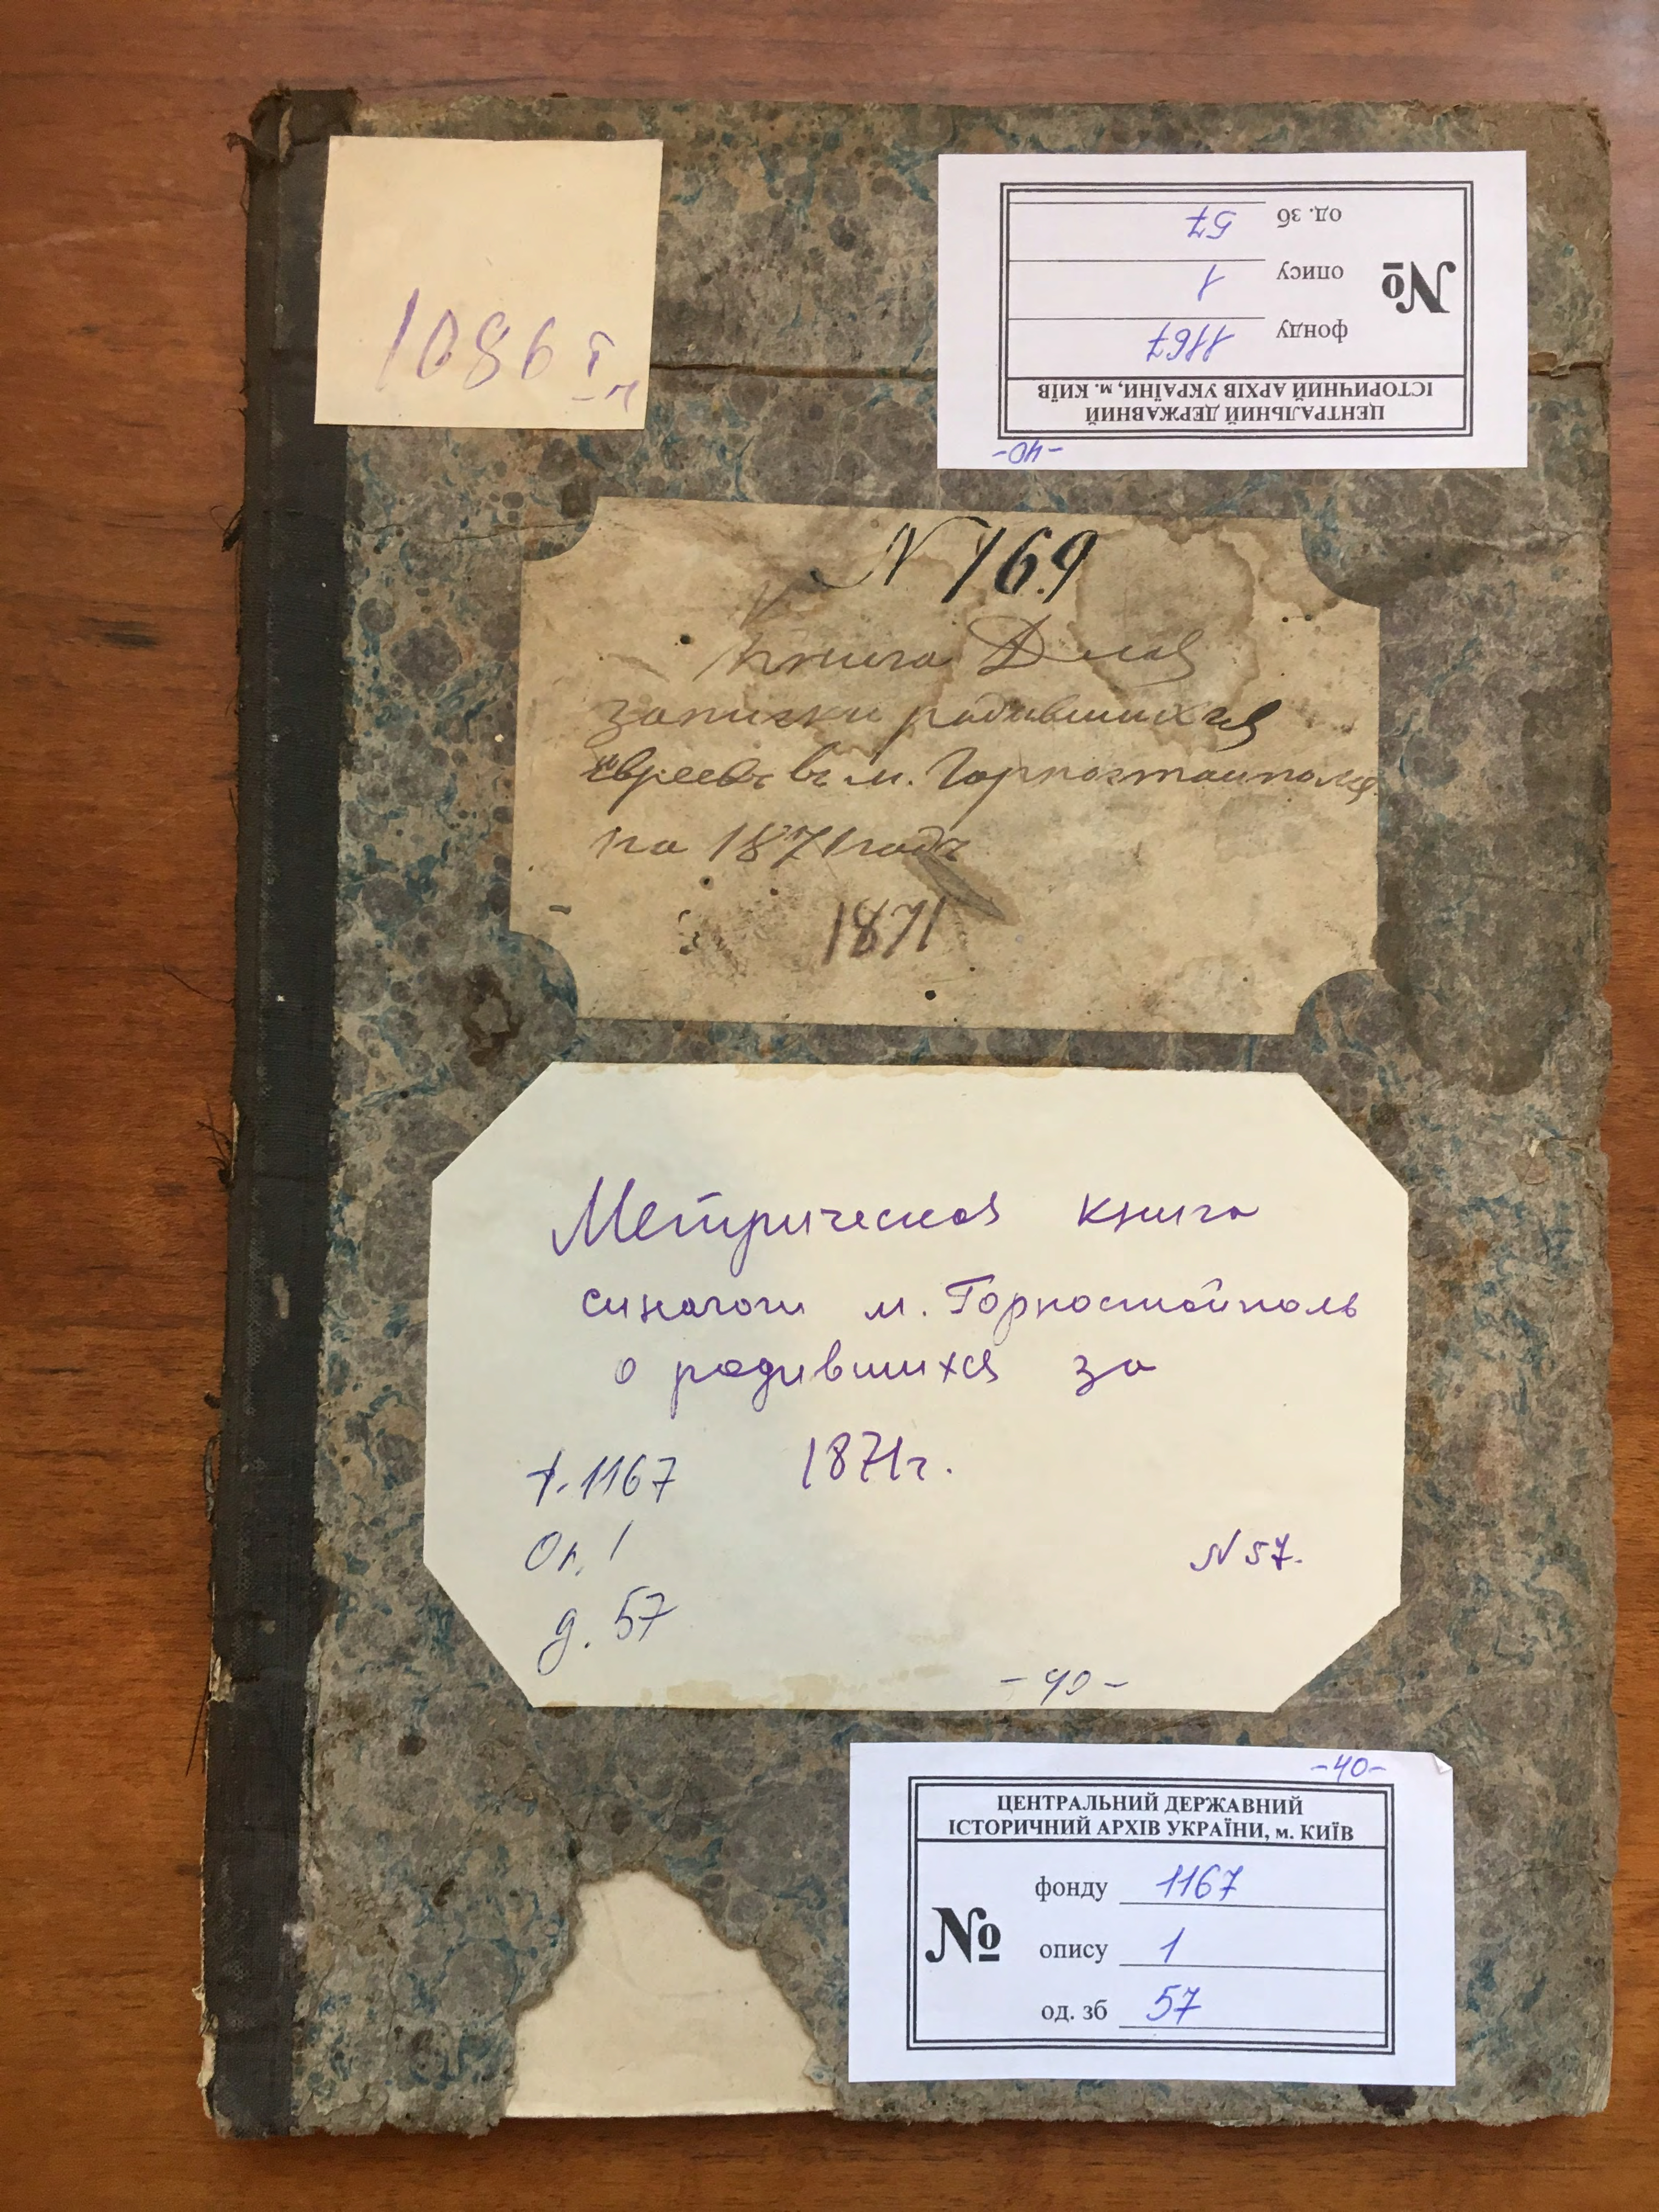 1086
-40-
ЦЕНТРАЛЬНИЙ ДЕРЖАВНИЙ
ІСТОРИЧНИЙ АРХІВ УКРАЇНИ, м. КИЇВ
№
фонду 1167
опису 1
од. зб 57
N 169
Книга Для
записки родившихся
евреевъ въ м. Горностайполе
на 1871 годъ
1871
Метрическая книга
синагоги м. Горностайполь
о родившихся за
1871г.
ф. 1167
Оп. 1
д. 57
N 57.
-40-
-40-
ЦЕНТРАЛЬНИЙ ДЕРЖАВНИЙ
ІСТОРИЧНИЙ АРХІВ УКРАЇНИ, м. КИЇВ
№
фонду 1167
опису 1
од. зб 57